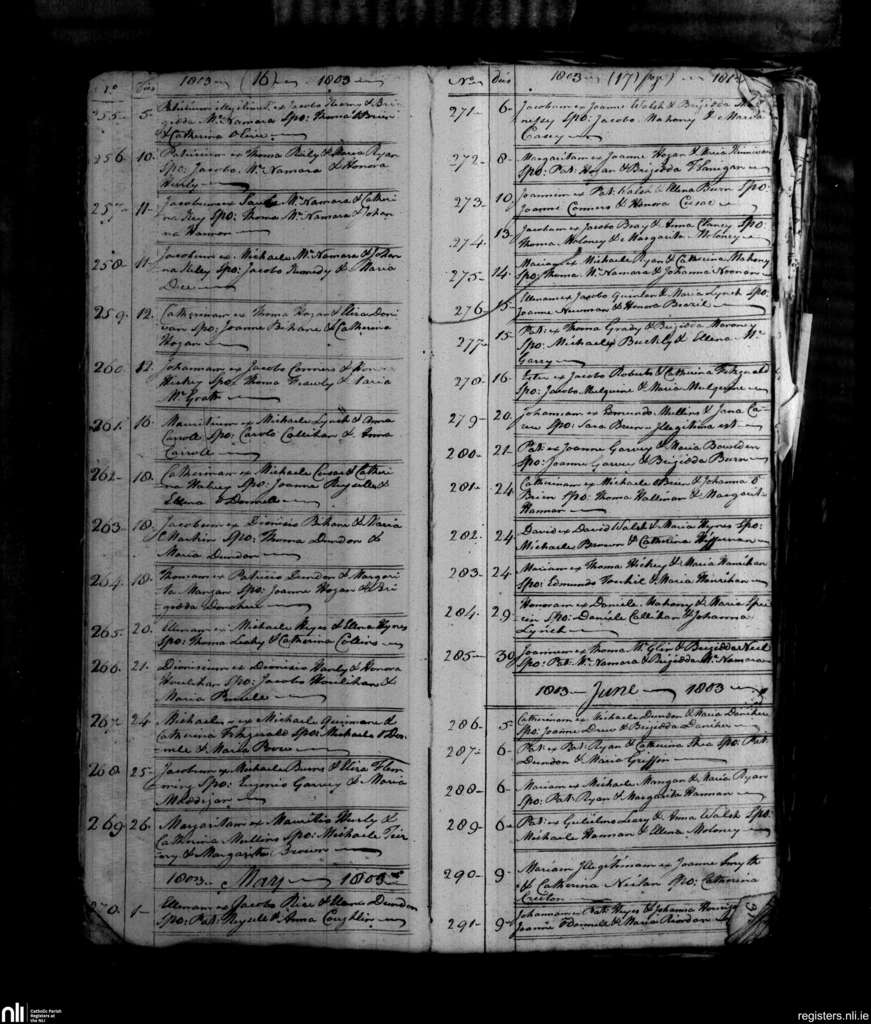 No. Dies 1803 (16) 1803
255 5 Patricium illegitimum ex Jacobo & Bri
gidda McNamara Spo: Thoma OBrien
& Catherina
256 10 Patricium ex Thoma Reily & Maria Ryan
Spo: Jacobo McNamara & Honora
Hurly
257 11 Jacobum ex McNamara & Catheri
na Spo: Thoma McNamara & Johan
na Hannon
258 11 Jacobum ex Michaele McNamara & Johan
na Spo: Jacobo Kennedy & Maria
259 12 Catherinam ex Thoma Hogan & Eliza Don
van Spo: Joanne Bihane & Catherina
Hogan
260 12 Johannam ex Jacobo Connors & Honora
Hickey Spo: Thoma & Maria
McGrath
261 16 Mauritium ex Michaele Lynch & Anna
Carroll Spo: Carolo Callihan & Anna
Carroll
262 18 Catherinam ex Michaele & Catheri
na Spo: Joanne &
Ellena O Donnell
263 18 Jacobum ex Dionisio Bihane & Maria
Spo: Thoma Dundon &
Maria Dundon
264 18 Thomam ex Patricio Dundon & Margari
ta Mangan Spo: Joanne Hogan & Bri
gidda Donohue
265 20 Ellenam ex Michaele Heyes & Ellena Hynes
Spo: Thoma Leahy & Catherina Collins
266 21 Dionisium ex Dionisio Hurly & Honora
Houlihan Spo: Jacobo Houlihan &
Maria
267 24 Michaelem ex Michaele &
Catherina Fitzgerald Spo: Michaele
& Maria
268 25 Jacobum ex Michaele Burns & Eliza Flem
ming Spo: Eugenio Garvey & Maria
269 26 Margaritam ex Mauritio Hurly &
Catherina Mullins Spo: Michaele
& Margarita Brown
1803 May 1803
270 1 Ellenam ex Jacobo Rice & Ellena Dundon
Spo: Pat: & Anna Coughlin
No. dies 1803 (17) 1803
271 6 Jacobum ex Joanne Walsh & Brigidda
Spo: Jacobo Mahony & Maria
Casey
272 8 Margaritam ex Joanne Hogan & Maria
Spo: Pat: Hogan & Brigidda Flanigan
273 10 Joannem ex Pat: Walsh & Ellena Burn Spo:
Joanne Connors & Honora Cusac
274 13 Jacobum ex Jacobo Bray & Anna Clancy Spo:
Thoma Moloney & Margarita Moloney
275 14 Mariam ex Michaele Ryan & Catherina Mahony
Spo: Thoma McNamara & Johanna Noonan
276 15 Ellenam ex Jacobo Quinlan & Maria Lynch Spo:
Joanne Newman & Honora
277 15 Pat: ex Thoma Grady & Brigidda Moroney
Spo: Michaele Buckly & Ellena Mc
Garry
278 16 Ester ex Jacobo Roberts & Catherina Fitzgerald
Spo: Jacobo Mulquine & Maria Mulquine
279 20 Johannam ex Edmundo Mullins & Jana Ca
rew Spo: Sara Burn Illegitima est
280 21 Pat: ex Joanne Garvey & Maria
Spo: Joanne Garvey & Brigidda Burn
281 24 Catherinam ex Michaele OBrien & Johanna O
Brien Spo: Thoma Hallinan & Margarita
Hannan
282 24 David ex David Walsh & Maria Hynes Spo:
Michaele Brown & Catherina Heffernan
283 24 Mariam ex Thoma Hickey & Maria Hourihan
Spo: Edmundo & Maria Hourihan
284 29 Honoram ex Daniele Mahony & Maria
Spo: Daniele Callihan & Johanna
Lynch
285 30 Joannem ex Thoma McGlin & Brigidda Neel
Spo: Pat: McNamara & Brigidda McNamara
1803 June 1803
286 5 Catherinam ex Michaele Dundon & Maria Danihor
Spo: Joanne Drew & Brigidda Danihor
287 6 Pat: ex Pat: Ryan & Catherina Shea Spo: Pat:
Dundon & Maria Griffin
288 6 Mariam ex Michaele Mangan & Maria Ryan
Spo: Pat: Ryan & Margarita Hannan
289 6 Pat: ex Gulielmo Lacy & Anna Walsh Spo:
Michaele Hannan & Ellena Moloney
290 9 Mariam Illegitimam ex Joanne Smyth
& Catherina Neilan Spo: Catherina
291 9 Johannam ex Pat: Heyes & Johanna
Joanne ODonnell & Maria Riordan
nli
Catholic Parish
Registers at
the NLI
registers.nli.ie